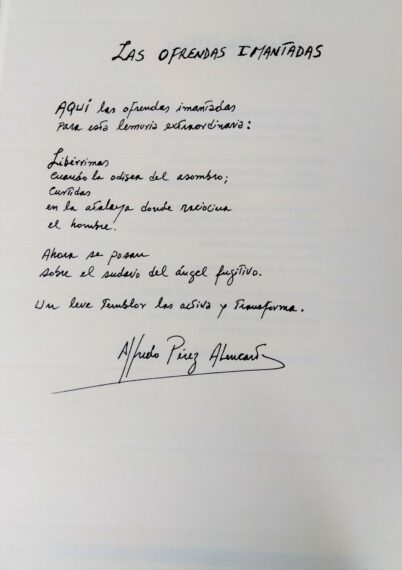 LAS OFRENDAS IMANTADAS
AQUÍ las ofrendas imantadas
para esta lemuria extraordinaria:
Libérrimas
cuando la odisea del asombro;
curtidas
en la atalaya donde raciocina
el hombre.
Ahora se posan
sobre el sudario del ángel fugitivo.
Un leve temblor las activa y transforma.
Alfredo Pérez Alencart